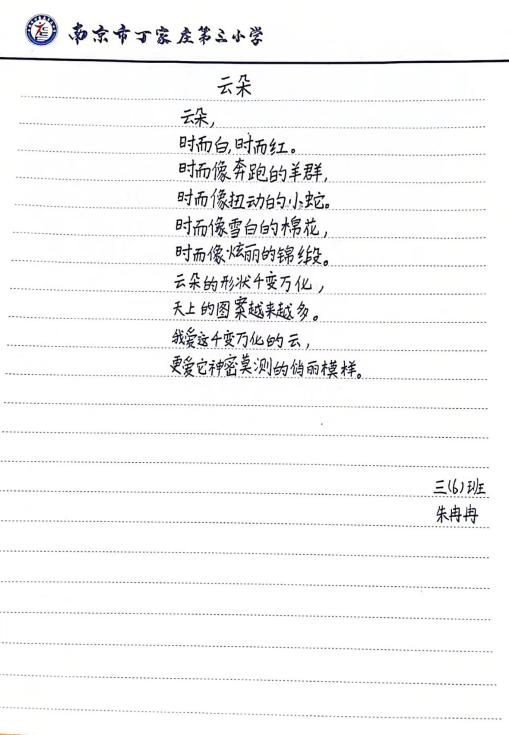 南京市丁家庄第三小学
云朵
云朵,
时而白,时而红。
时而像奔跑的羊群,
时而像扭动的小蛇。
时而像雪白的棉花,
时而像炫丽的锦缎。
云朵的形状千变万化,
天上的图案越来越多。
我爱这千变万化的云,
更爱它神密莫测的俏丽模样。
三(6)班
朱冉冉